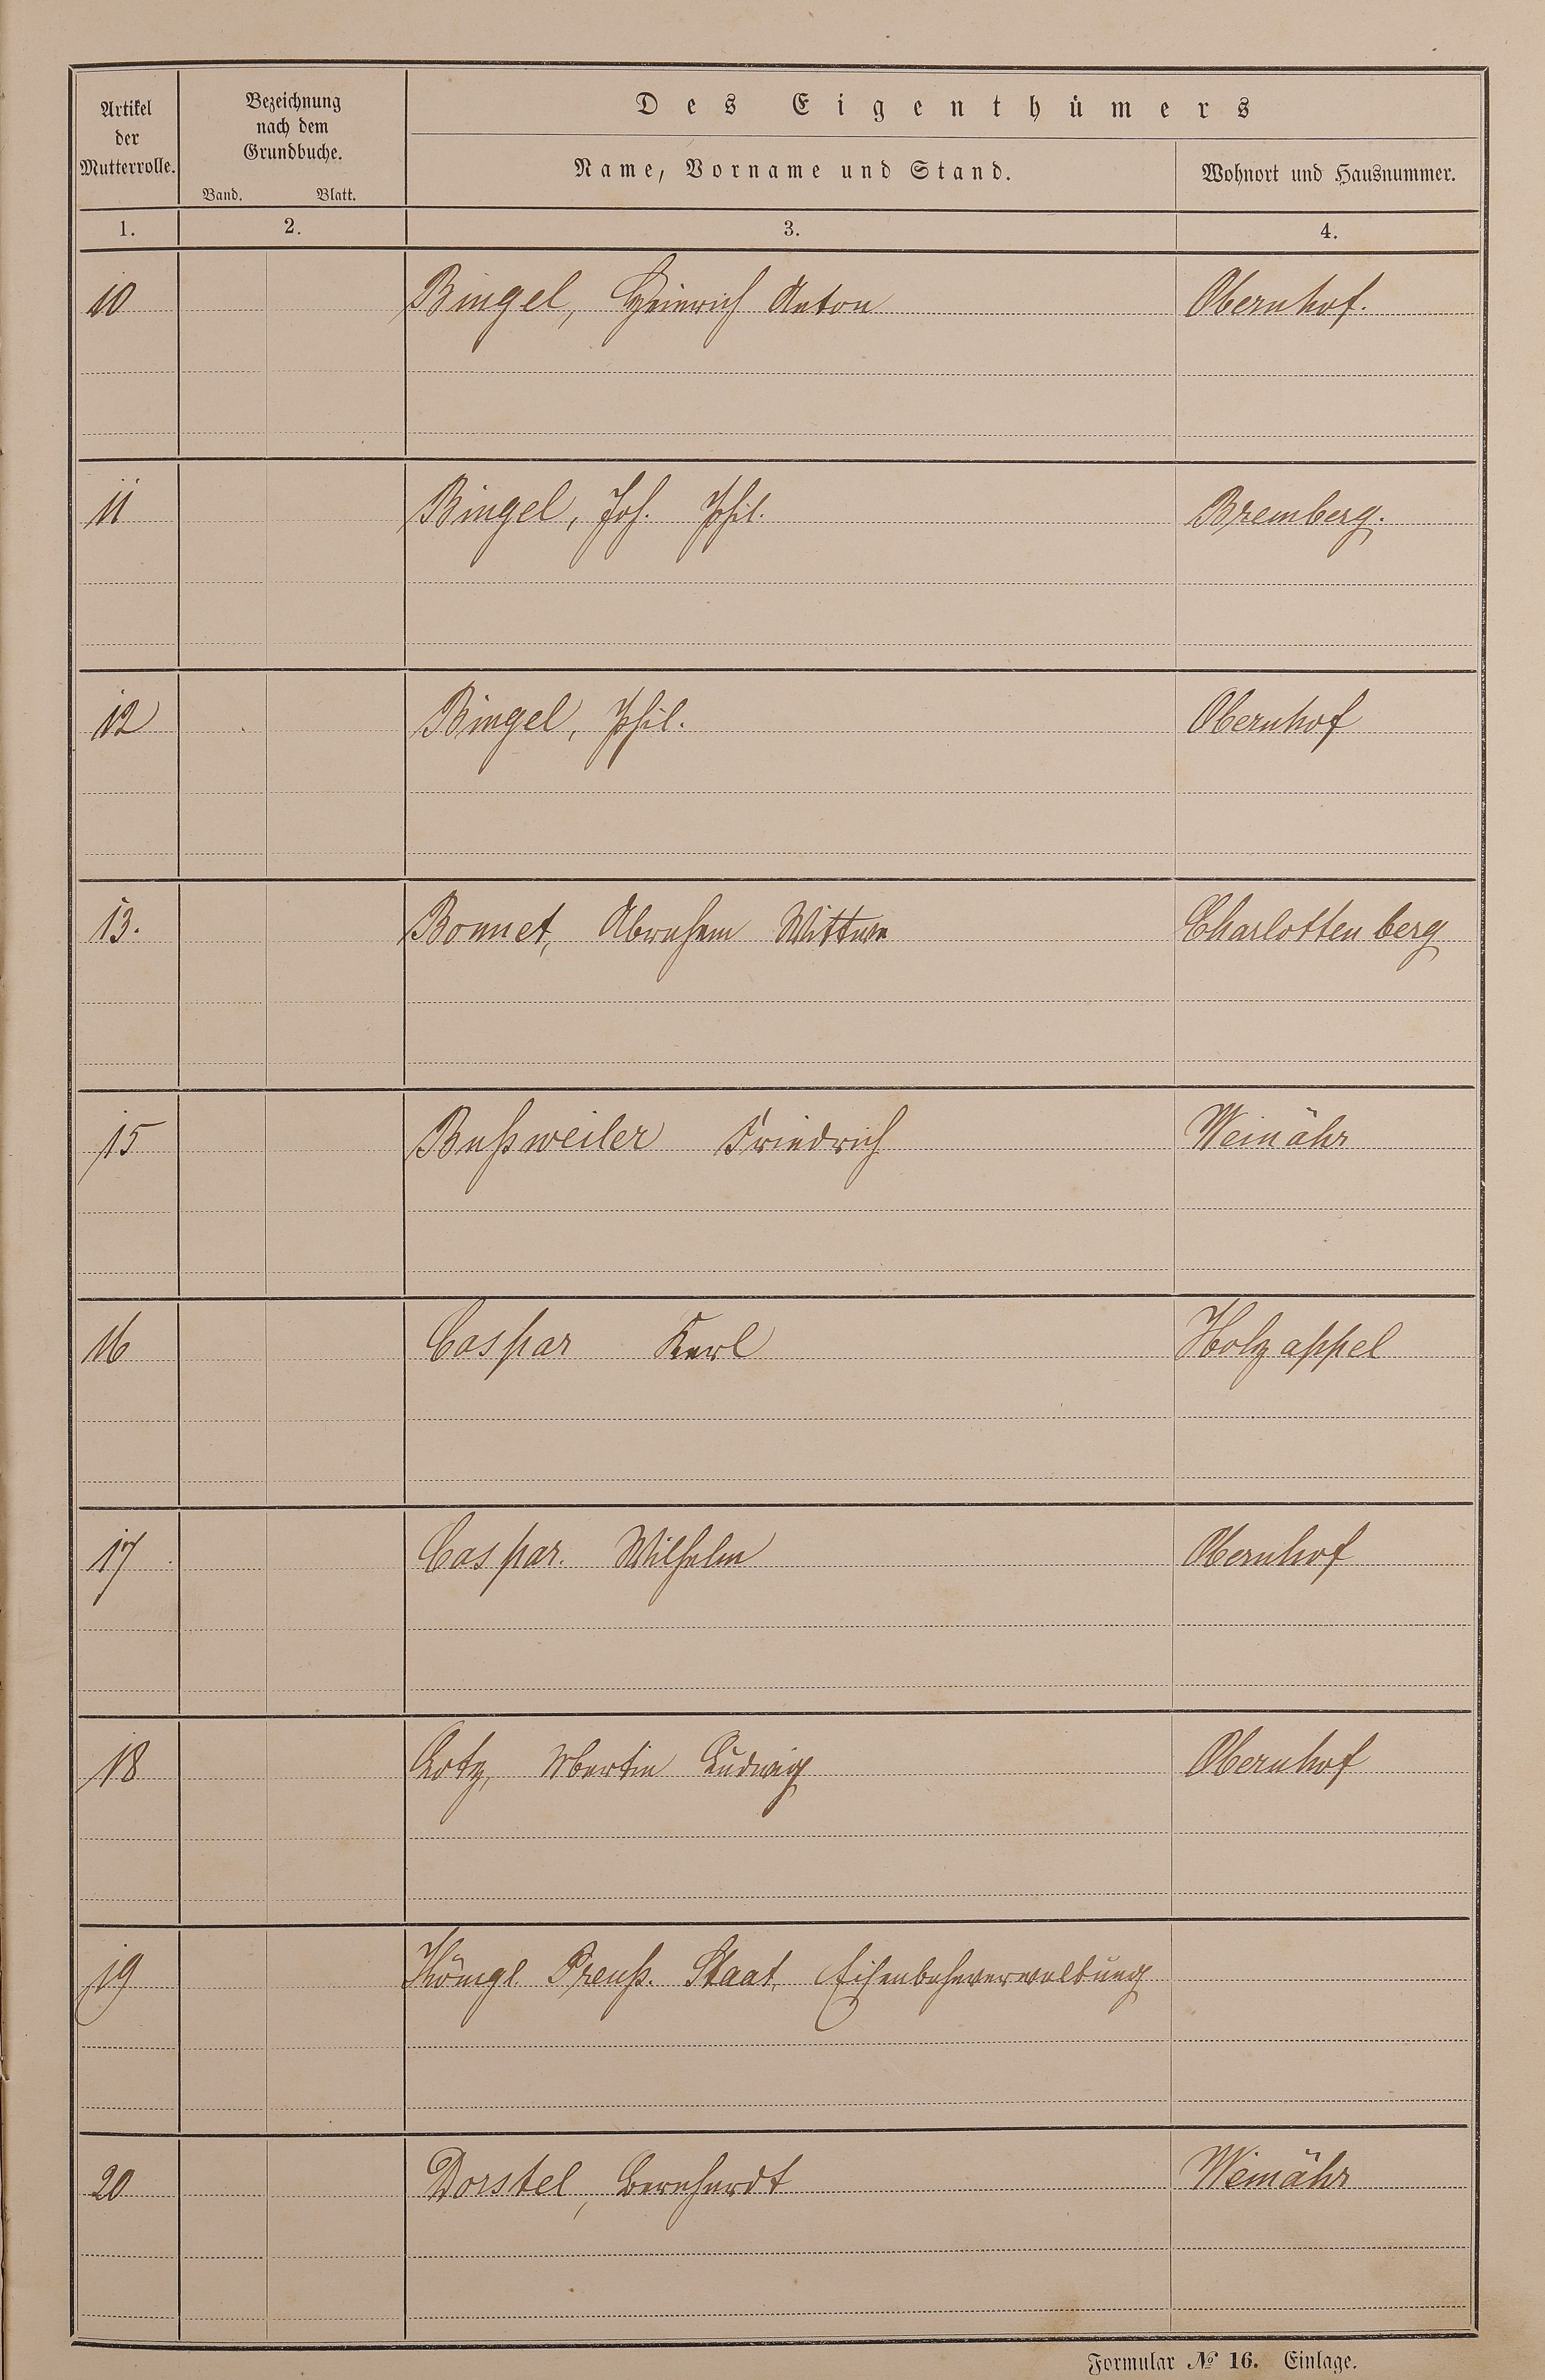 Artikel
der
Mutterrolle.
Bezeichnung
nach dem
Grundbuche.
Band. Blatt.
Des Eigenthümers
Name, Vorname und Stand.
Wohnort und Hausnummer.
1. 2. 3. 4.
10 Bingel, Heinrich Anton Obernhof.
11 Bingel, Joh. Phil. Bremberg.
12 Bingel, Phil. Obernhof
13. Bonnet, Abraham Wittwe Charlottenberg
15 Bußweiler Friedrich Weinähr
16 Caspar Karl Holzappel
17 Caspar. Wilhelm Obernhof
18 Martin Ludwig Obernhof
19 Königl Preuß. Staat, Eisenbahnverwaltung
20 Dorstel, Bernhardt Weinähr
Formular № 16. Einlage.